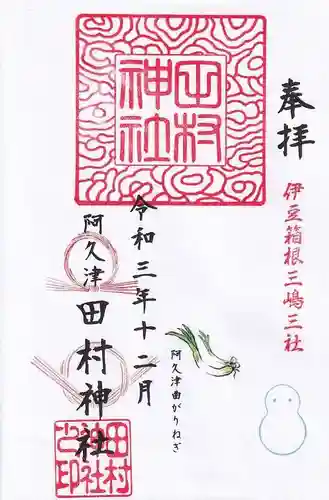 奉拝
伊豆箱根三嶋三社
田村
神社
阿久津曲がりねぎ
令和三年十二月
阿久津
田村神社
田村
社
印